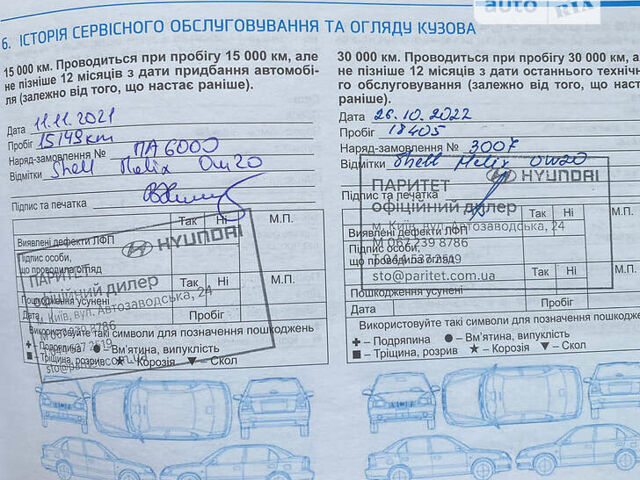 auto RIA
6. ІСТОРІЯ СЕРВІСНОГО ОБСЛУГОВУВАННЯ ТА ОГЛЯДУ КУЗОВА
15 000 км. Проводиться при пробігу 15 000 км, але
не пізніше 12 місяців з дати придбання автомобі-
ля (залежно від того, що настає раніше).
Дата 11.11.2021
Пробіг 15149 km
Наряд-замовлення № ПА6000
Відмітки Shell Helix 0w20
Підпис та печатка
Так Ні М.П.
Виявлені дефекти ЛФП
Підпис особи,
що проводила огляд
Так Ні М.П.
Пошкодження усунені
Дата Пробіг
Використовуйте такі символи для позначення пошкоджень
Подряпина Вм'ятина, випуклість
Тріщина, розрив Корозія Скол
HYUNDAI
ПАРИТЕТ
офіційний дилер
м. Київ, вул. Автозаводська, 24
М 067 239 8786
30 000 км. Проводиться при пробігу 30 000 км, а
не пізніше 12 місяців з дати останнього технічн
го обслуговування (залежно від того, що наста
раніше).
Дата 26.10.2022
Пробіг 18405
Наряд-замовлення № 3007
Відмітки Shell Helix 0w20
Підпис та печатка
Так Ні М.П.
Виявлені дефекти ЛФП
Підпис особи,
що проводила огляд
Так Ні М.П.
Пошкодження усунені
Дата Пробіг
Використовуйте такі символи для позначення пошкод
Подряпина Вм'ятина, випуклість
Тріщина, розрив Корозія Скол
HYUNDAI
ПАРИТЕТ
офіційний дилер
м. Київ, вул. Автозаводська, 24
М 067 239 8786
Т 044 537 2519
sto@paritet.com.ua